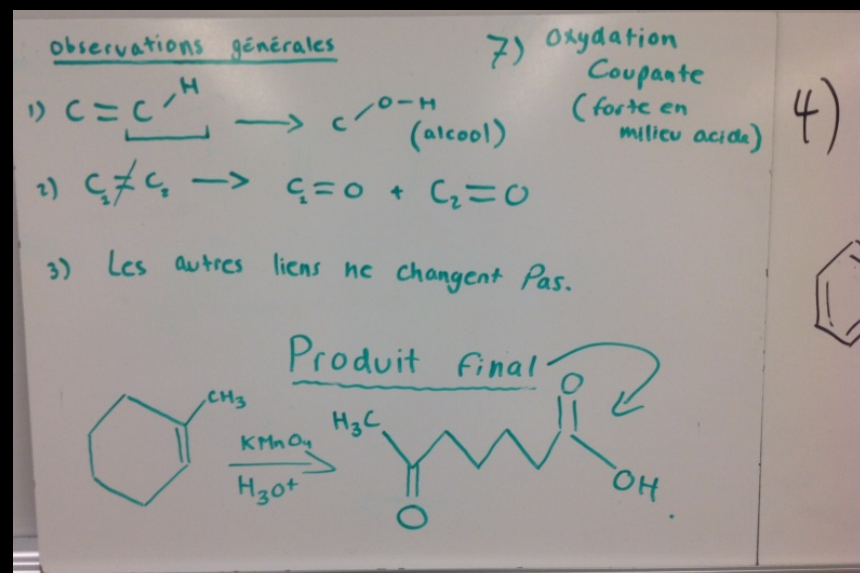 Observations générales
7) Oxydation
Coupante
(forte en
milieu acide)
4)
1) C = C H → C O-H
(alcool)
2) C₁ ≠ C₂ → C₁=O + C₂=O
3) Les autres liens ne changent Pas.
Produit final
CH₃
KMnO₄
H₃O+
H₃C
O
O
OH